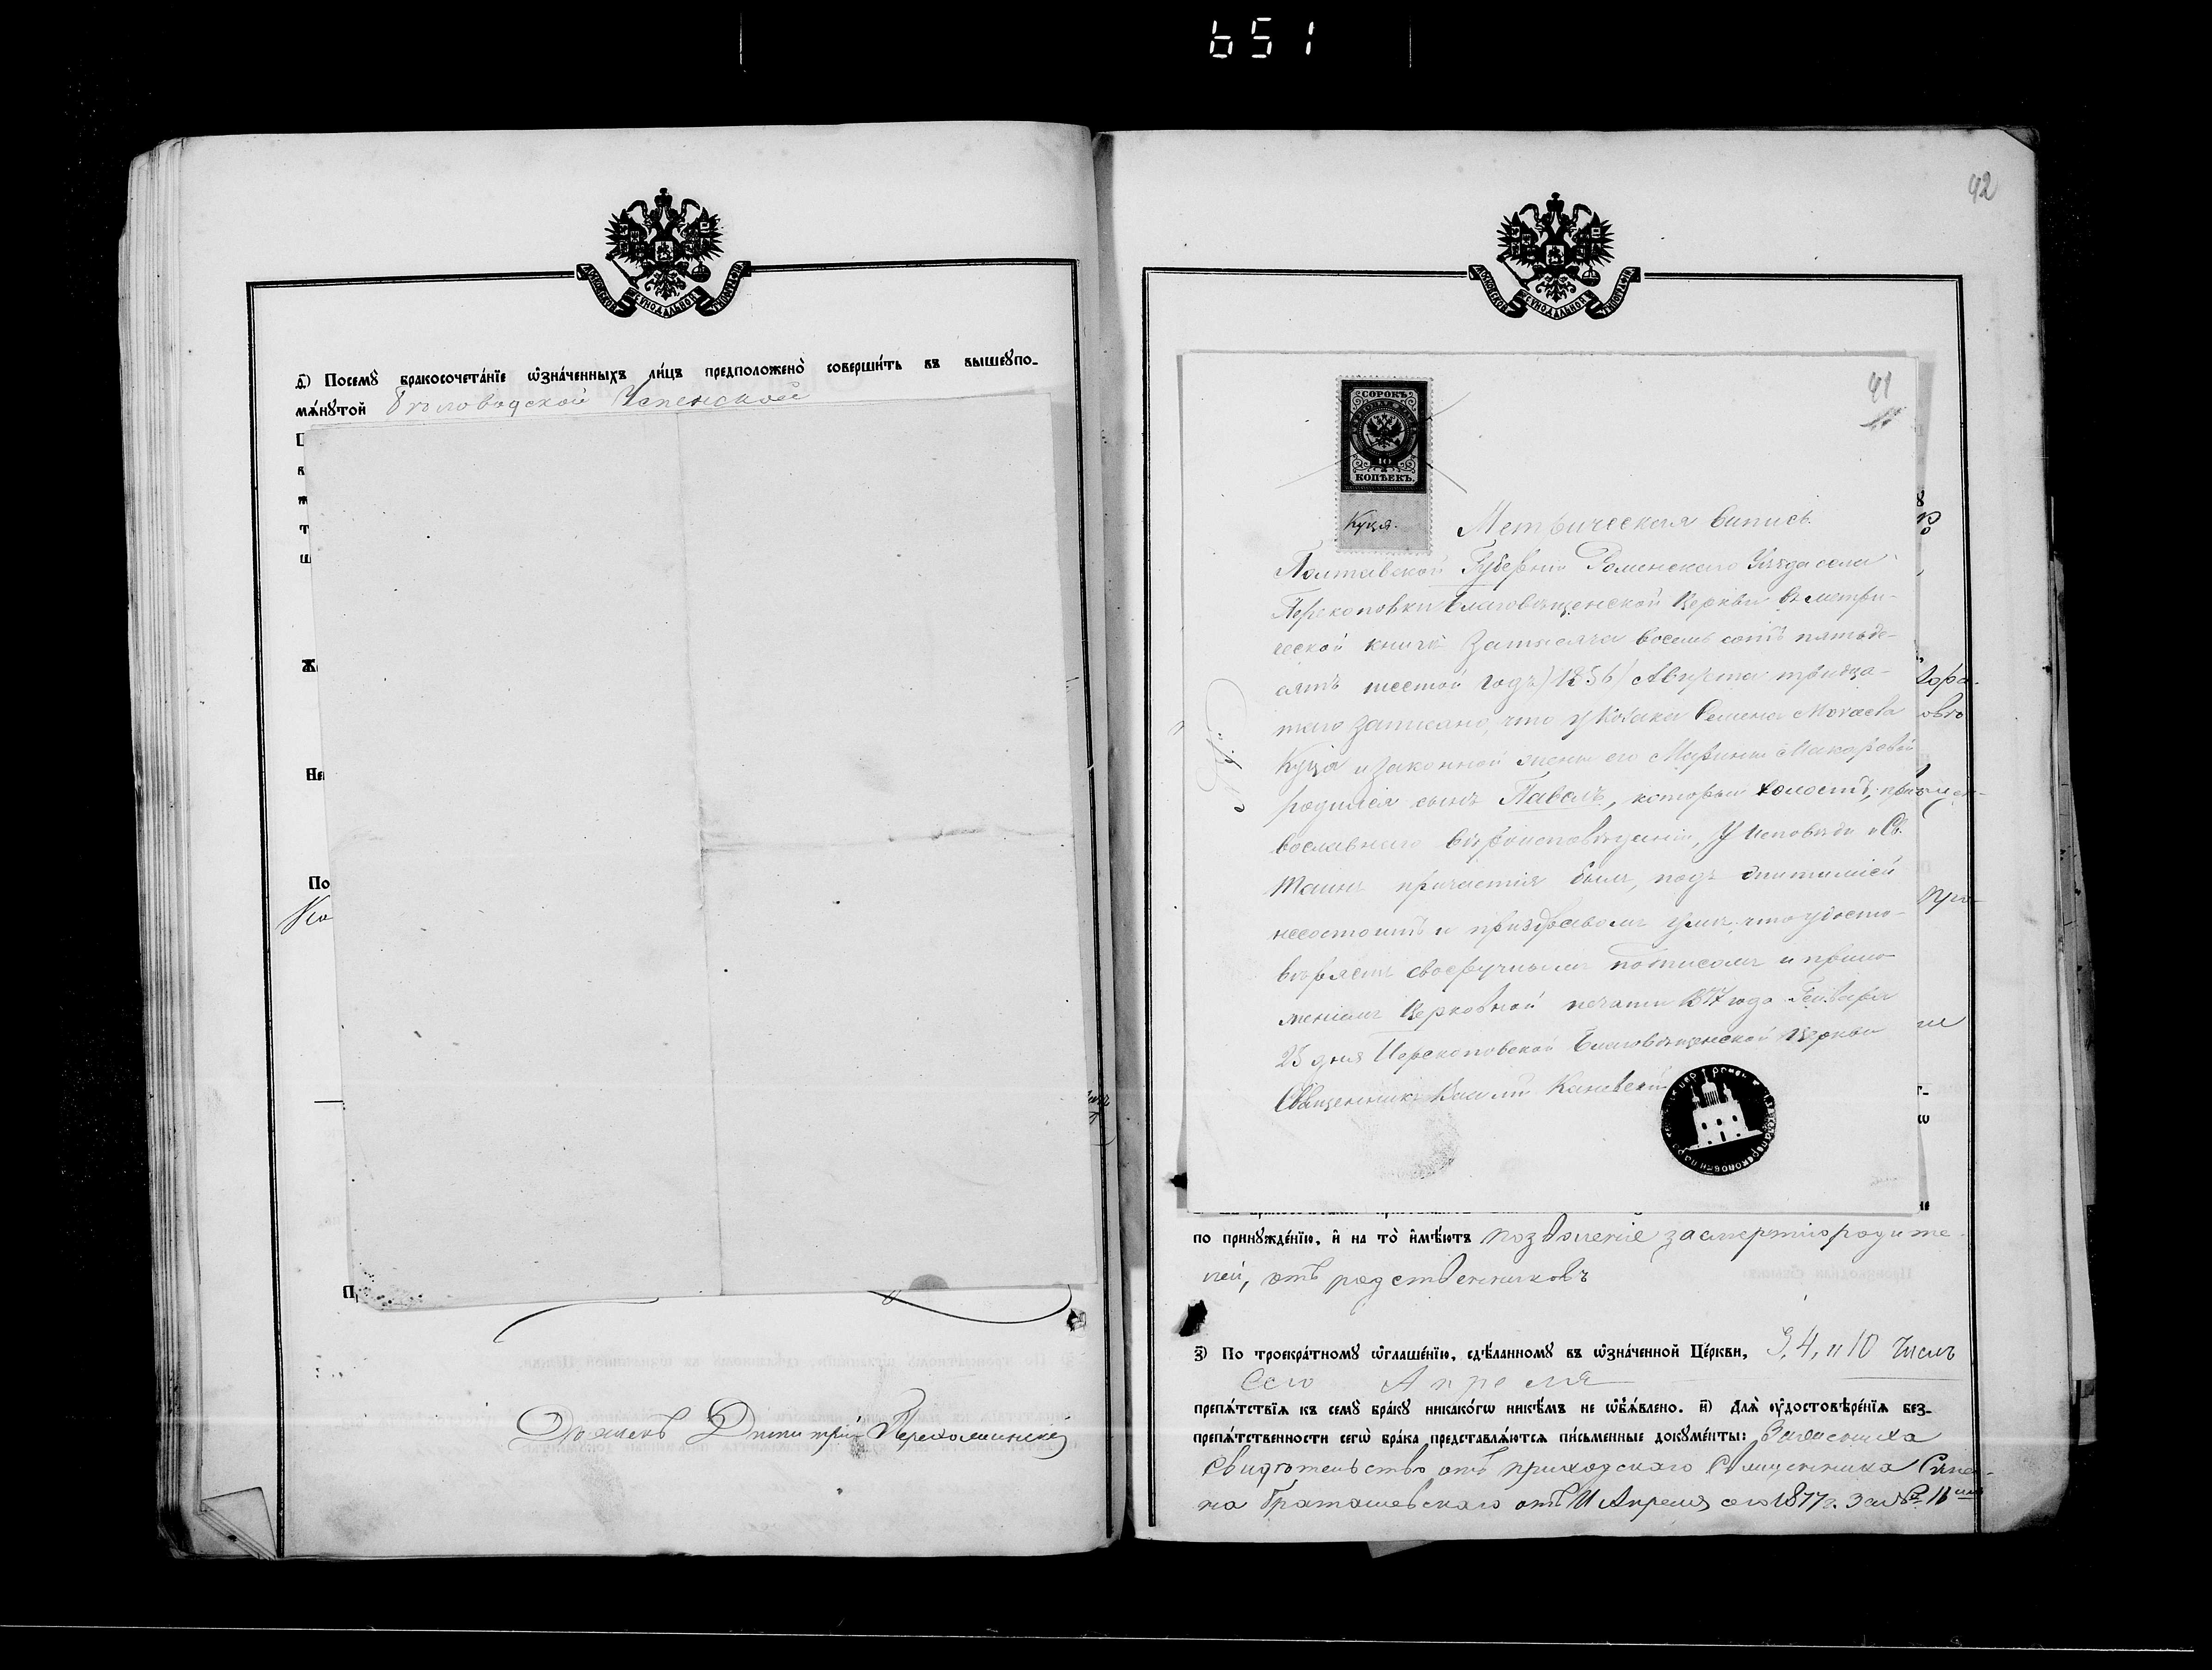 651
МОСКОВСКОЙ СѴНОДАЛЬНОЙ ТИПОГРАФІИ
д҃) Посемꙋ̀ бракосочета́нїе ѡ҆зна́ченныхъ ли́цъ предположено̀ соверши́ть въ вышеꙋпо-
мѧ́нꙋтой Бѣловодской Успенской
По
Ко
Дьяконъ Дмитрій
92
МОСКОВСКОЙ СѴНОДАЛЬНОЙ ТИПОГРАФІИ
91
СОРОКЪ
10
КОПѢЕКЪ.
Куця.
Метрическая выпись
Полтавской Губерніи Роменскаго Уѣзда села
Перекоповки Благовѣщенской Церкви въ метри-
ческой книгѣ за тысяча восемь сотъ пятьде-
сятъ шестой годъ (1856) Августа тридца-
таго записано, что у козака Семена Мокаева
Куца и законной жены его Марины Макаровой
родился сынъ Павелъ, который холостъ, пра-
вославнаго вѣроисповѣданія, У исповѣди и Св.
Таинъ причастія былъ, подъ епитимией
несостоитъ и при здравомъ умѣ, что удосто-
вѣряемъ своеручнымъ подписомъ и прило-
женіемъ Церковной печати 1877 года Генваря
23 дня Перекоповской Благовѣщенской Церкви
Священникъ Василій Каневскій
по принꙋжде́нїю, и҆ на то̀ и҆мѣ́ютъ позволеніе за смертію родите-
лей, отъ родственниковъ
з҃) По троекра́тномꙋ ѡ҆глаше́нїю, сдѣ́ланномꙋ въ ѡ҆зна́ченной Це́ркви, 3, 4, и 10 числъ
сего Апреля
препѧ́тствїѧ къ семꙋ̀ бра́кꙋ никако́гѡ никѣ́мъ не ѡ҆б̾ѧ́влено. и҃) Длѧ̀ ᲂу҆достовѣре́нїѧ без-
препѧ́тственности сегѡ̀ бра́ка представлѧ́ютсѧ пи́сьменные докꙋме́нты:
Свидѣтельство отъ приходскаго Священника Симео-
на Браташевскаго отъ 11 Апреля сего 1877 г. за № 11